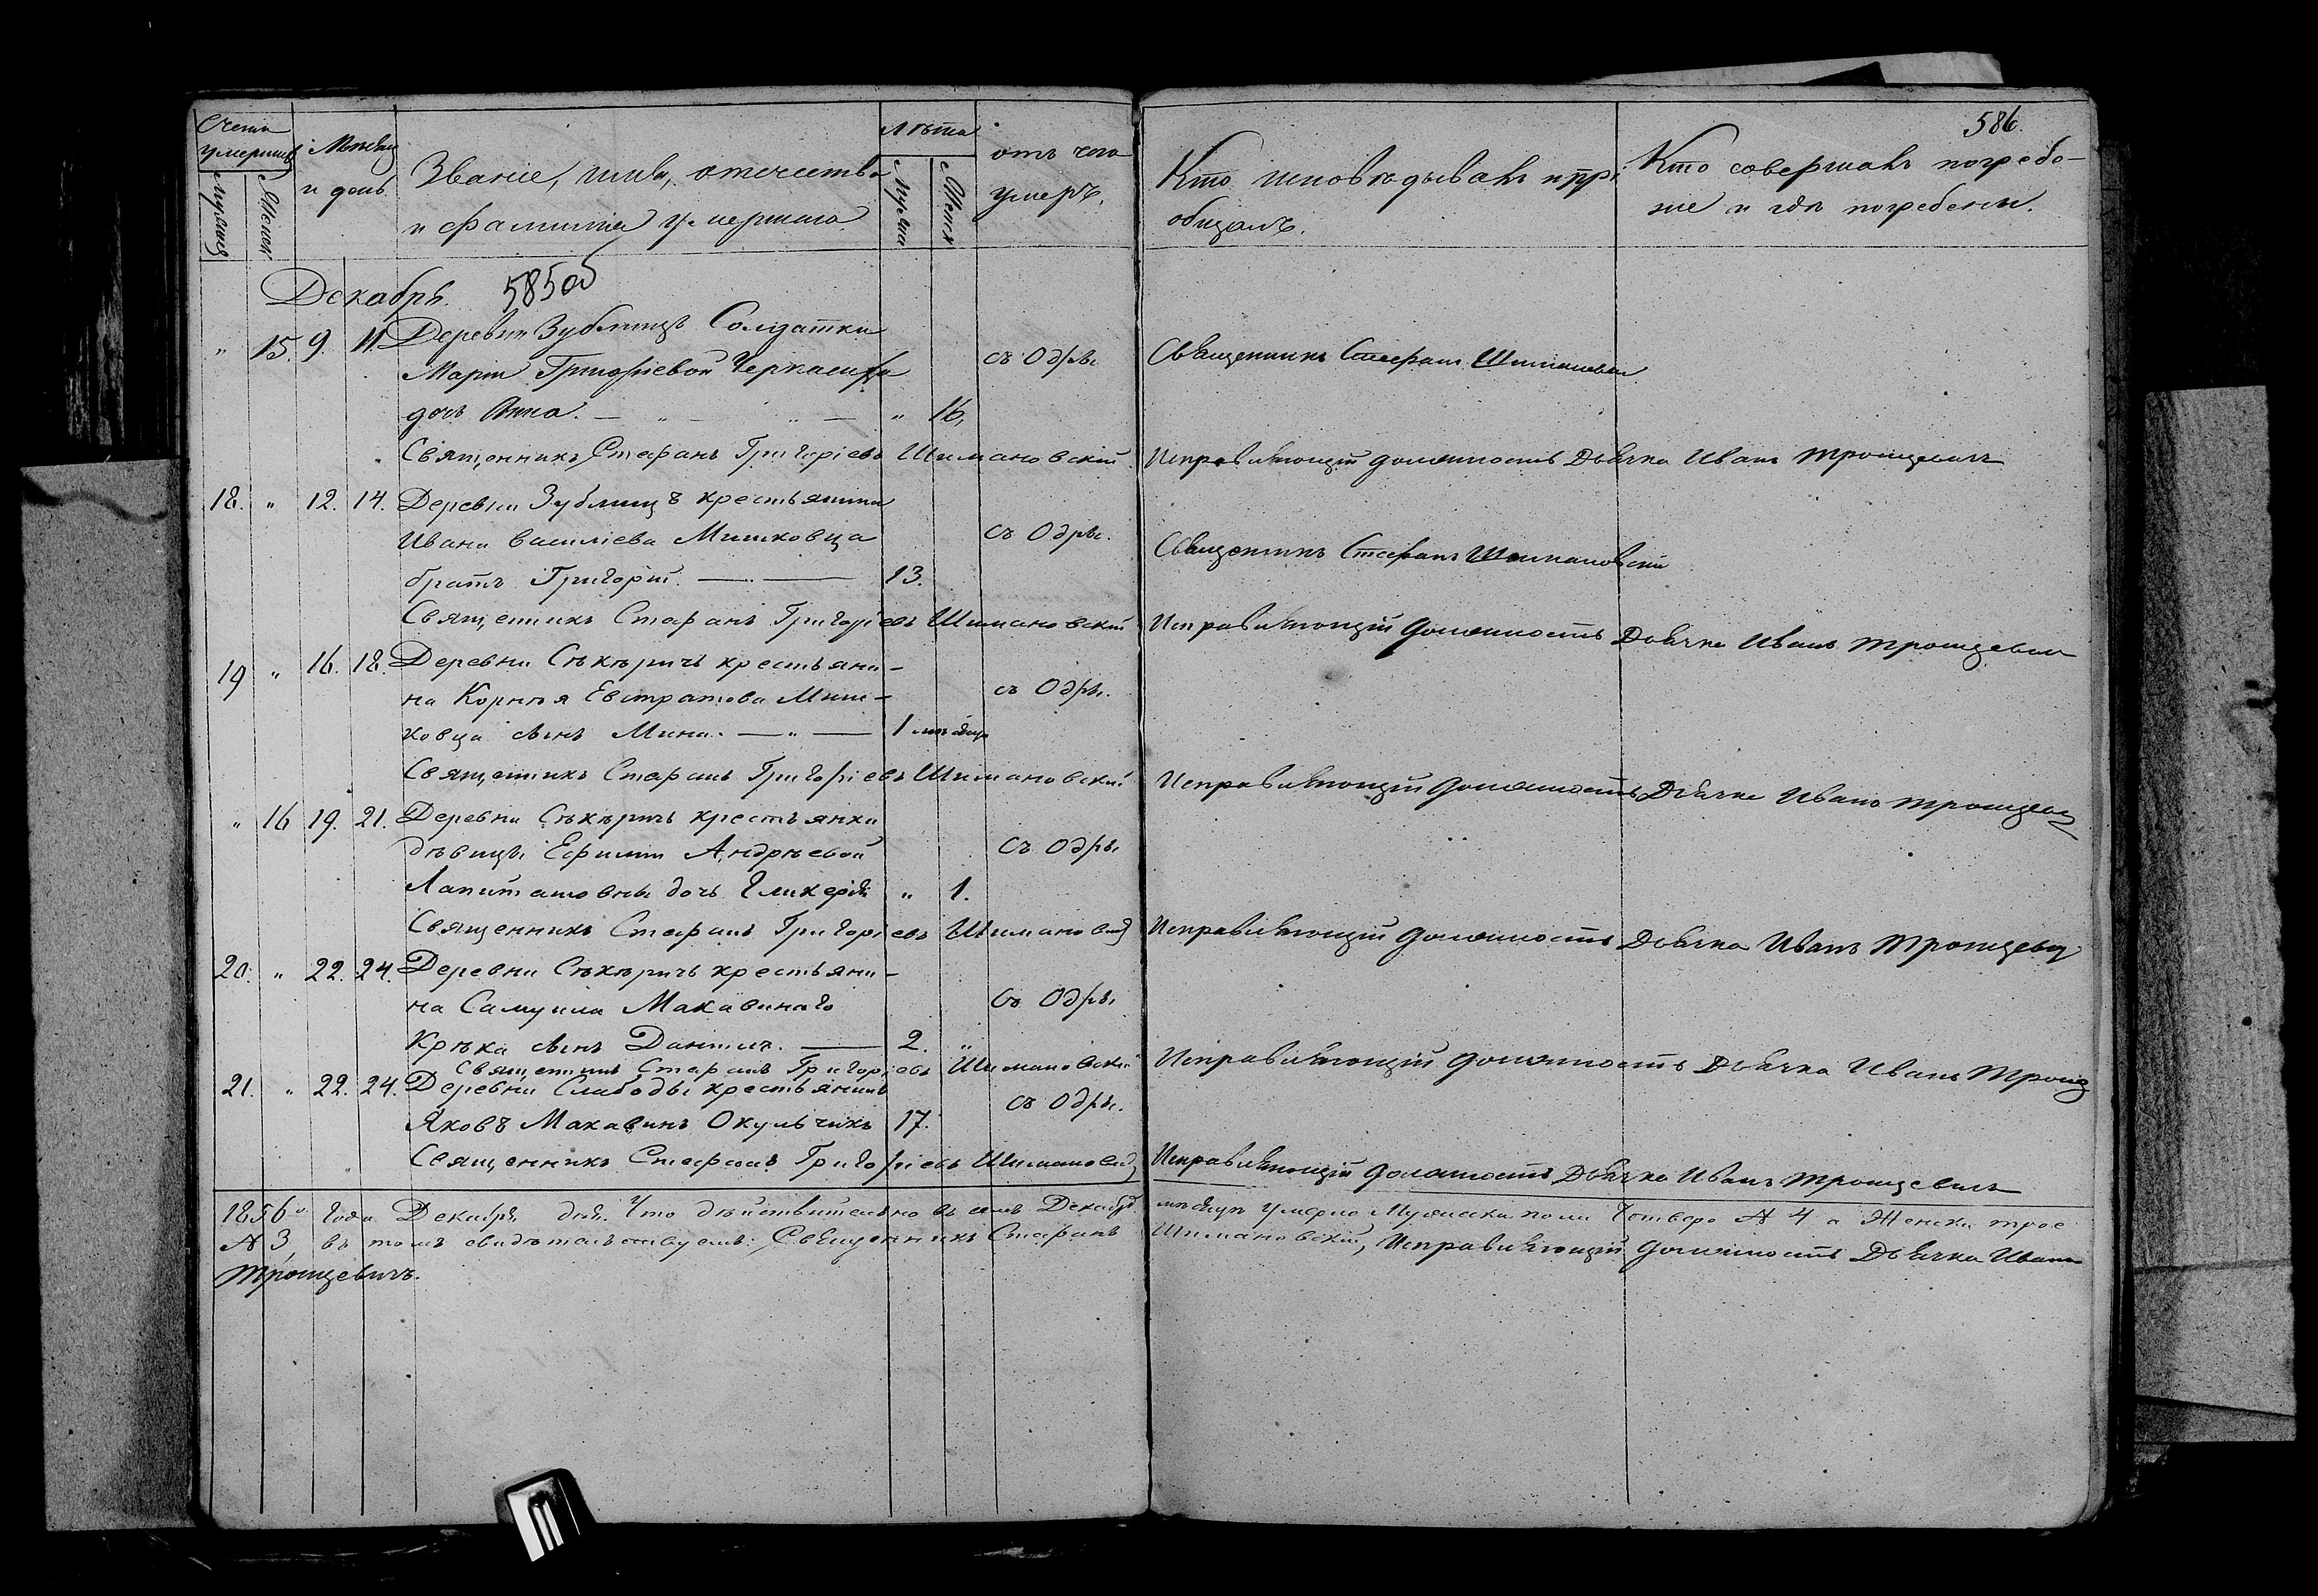 586.
Счетъ умершихъ
Мужеска
Женска
Месяцъ и день
Званіе, имя, отечество
и фамилія умершаго.
Лѣта
Мужеска
Женска
отъ чего
умеръ.
Кто исповѣдывалъ и прі-
общалъ.
Кто совершалъ погребе-
ніе и гдѣ погребены.
Декабрь. 585об
" 15. 9. 11. Деревни Зублищъ Солдатки
Маріи Григоріевой съ Одры Священникъ Стефанъ Шимановскій
дочь Анна. — " — " 16.
Священникъ Стефанъ Григоріевъ Шимановскій. Исправляющій должность Дьячка Иванъ Трощевичъ
18. " 12. 14. Деревни Зублищъ крестьянина
Ивана Василіева Мишковца съ Одры. Священникъ Стефанъ Шимановскій
братъ Григорій. — — 13.
Священникъ Стефанъ Григоріевъ Шимановскій Исправляющій должность Дьячка Иванъ Трощевичъ
19 " 16. 18. Деревни Сѣкѣричъ крестьяни-
на Корнѣя Евстратова Миш- съ Одры.
ковца сынъ Мина. — " — 1 мѣсяцъ
Священникъ Стефанъ Григоріевъ Шимановскій Исправляющій должность Дьячка Иванъ Трощевичъ
" 16 19. 21. Деревни Сѣкѣричъ крестьянки
дѣвицы Ефиміи Андрѣевой съ Одры
дочь Гликерія " 1.
Священникъ Стефанъ Григоріевъ Шимановскій Исправляющій должность Дьячка Иванъ Трощевичъ
20. " 22. 24. Деревни Сѣкѣричъ крестьяни-
на Самуила Макавинаго съ Одры
Крѣка сынъ Даніилъ. — 2. "
Священникъ Стефанъ Григоріевъ Шимановскій Исправляющій должность Дьячка Иванъ Трощ
21. " 22. 24. Деревни Слабоды крестьянинъ
Яковъ Макавинъ Окульчикъ 17. съ Одры.
Священникъ Стефанъ Григоріевъ Шимановскій Исправляющій должность Дьячка Иванъ Трощевичъ
1856го Года Декабря дня. Что дѣйствительно въ семъ Декабрѣ мѣсяцѣ умерло Мужеска пола Четверо № 4 а Женска трое
№ 3, въ томъ свидѣтельствуемъ: Священникъ Стефанъ Шимановскій, Исправляющій должность Дьячка Иванъ
Трощевичъ.